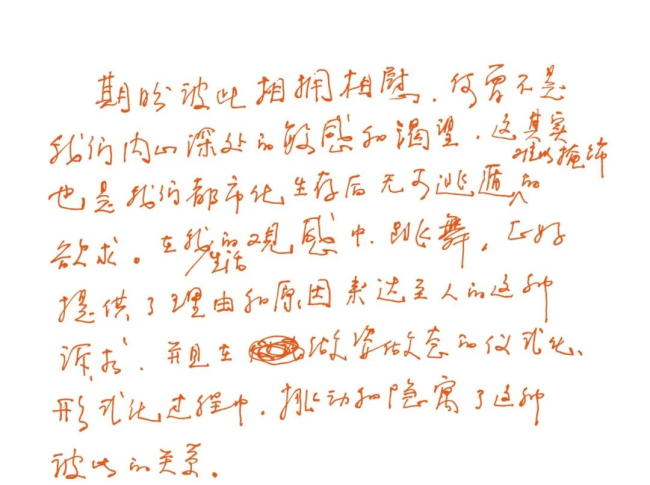 期盼彼此相拥相慰，何曾不是
我们内心深处的敏感和渴望，这其实
也是我们都市化生存后无可逃遁难以掩饰的
欲求。在我的生活观感中，跳舞，正好
提供了理由和原因来达至人的这种
诉求，并且在做姿做态的仪式化、
形式化过程中，挑动和隐寓了这种
彼此的关系。